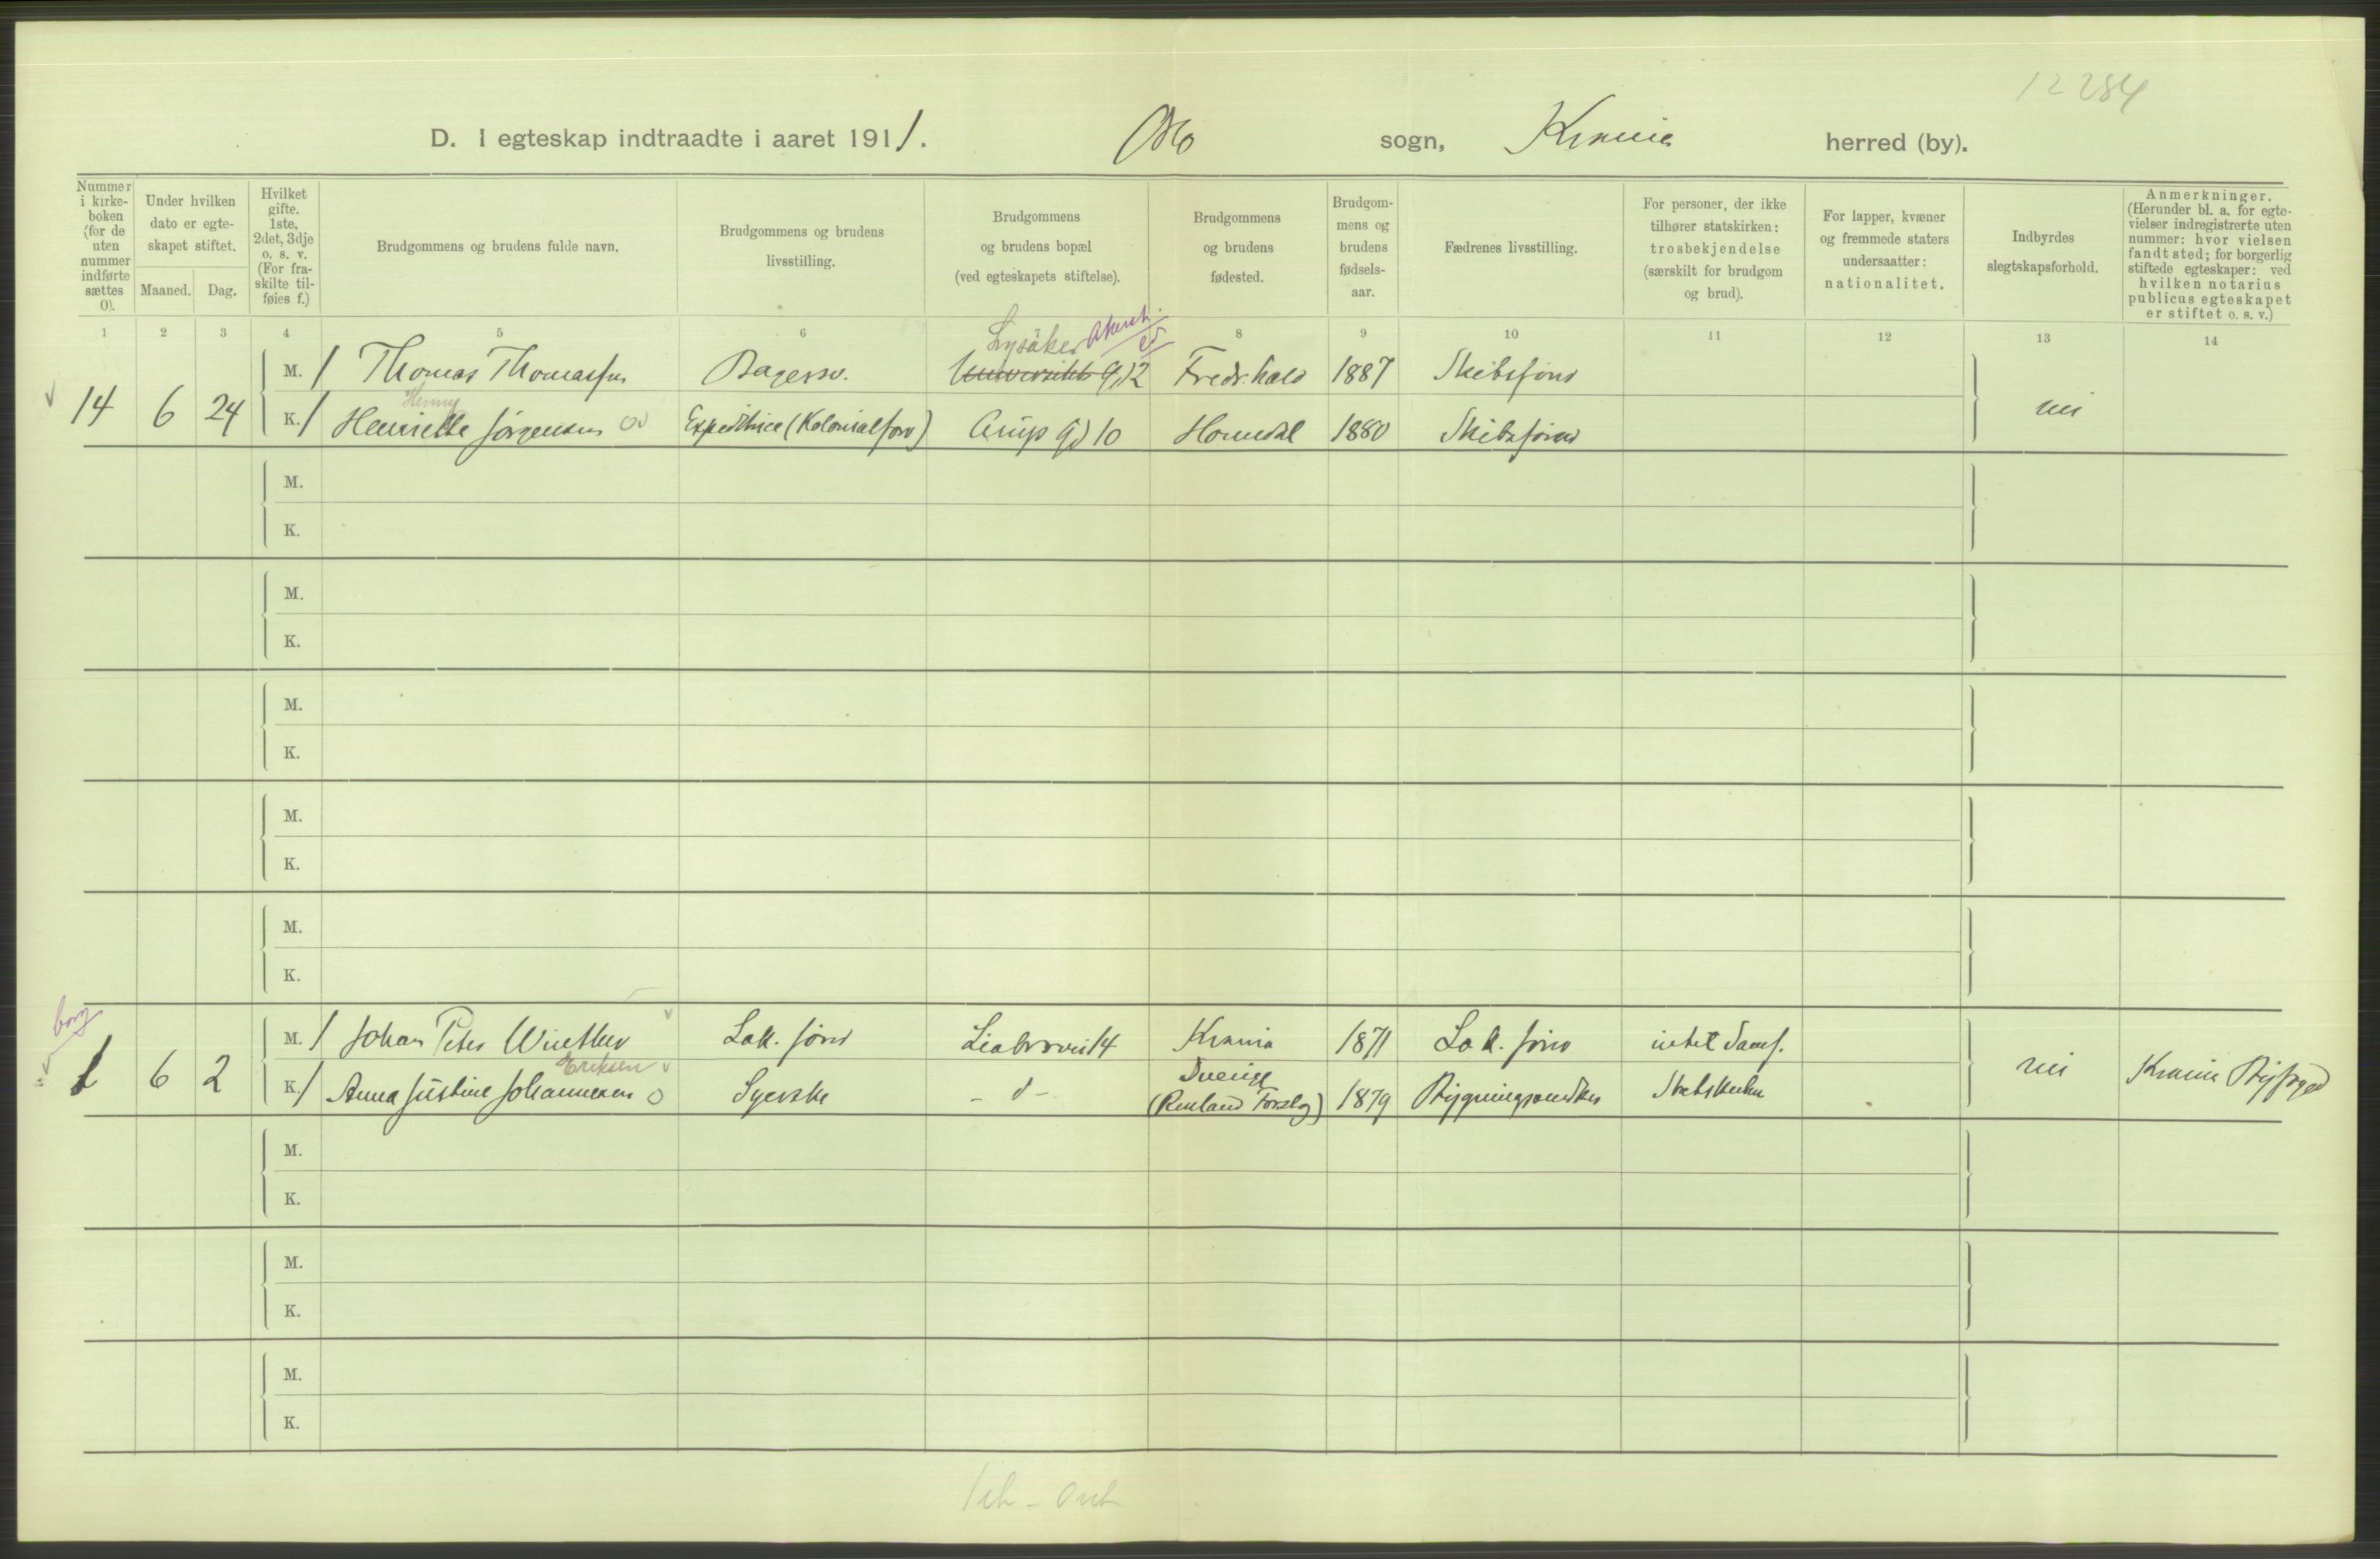 12284
D. I egteskap indtraadte i aaret 1911. Oslo sogn, Krania herred (by).
Nummer i kirkeboken (for de uten nummer indførte sættes 0).
Under hvilken dato er egteskapet stiftet.
Maaned. Dag.
Hvilket gifte. 1ste, 2det, 3dje o. s. v. (For fraskilte tilføies f.)
Brudgommens og brudens fulde navn.
Brudgommens og brudens livsstilling.
Brudgommens og brudens bopæl (ved egteskapets stiftelse).
Brudgommens og brudens fødested.
Brudgommens og brudens fødselsaar.
Fædrenes livsstilling.
For personer, der ikke tilhører statskirken: trosbekjendelse (særskilt for brudgom og brud).
For lapper, kvæner og fremmede staters undersaatter: nationalitet.
Indbyrdes slegtskapsforhold.
Anmerkninger. (Herunder bl. a. for egtevielser indregistrerte uten nummer: hvor vielsen fandt sted; for borgerlig stiftede egteskaper: ved hvilken notarius publicus egteskapet er stiftet o. s. v.)
1 2 3 4 5 6 8 9 10 11 12 13 14
Lysaker Akersh.
M. 1 Thomas Thomassen Bagersv. Universitets Gd 2 Fredr.hald 1887 Skibsfører
Henny
14 6 24 K. 1 Henriette Jørgensen Expeditrice (Kolonialforr) Arups Gd 10 Homedal 1880 Skibsfører nei
M.
K.
M.
K.
M.
K.
M.
K.
M.
K.
borg
M. 1 Johan Peter Winther Lok. fører Liabroveien 14 Krania 1871 Lok. fører intet Samf.
Eriksen
1 6 2 K. 1 Anna Justine Johannesen Syerske - d - Sverige 1879 Bygningssnedker Statskirken nei Krania Byfoged
M.
K.
M.
K.
M.
K.